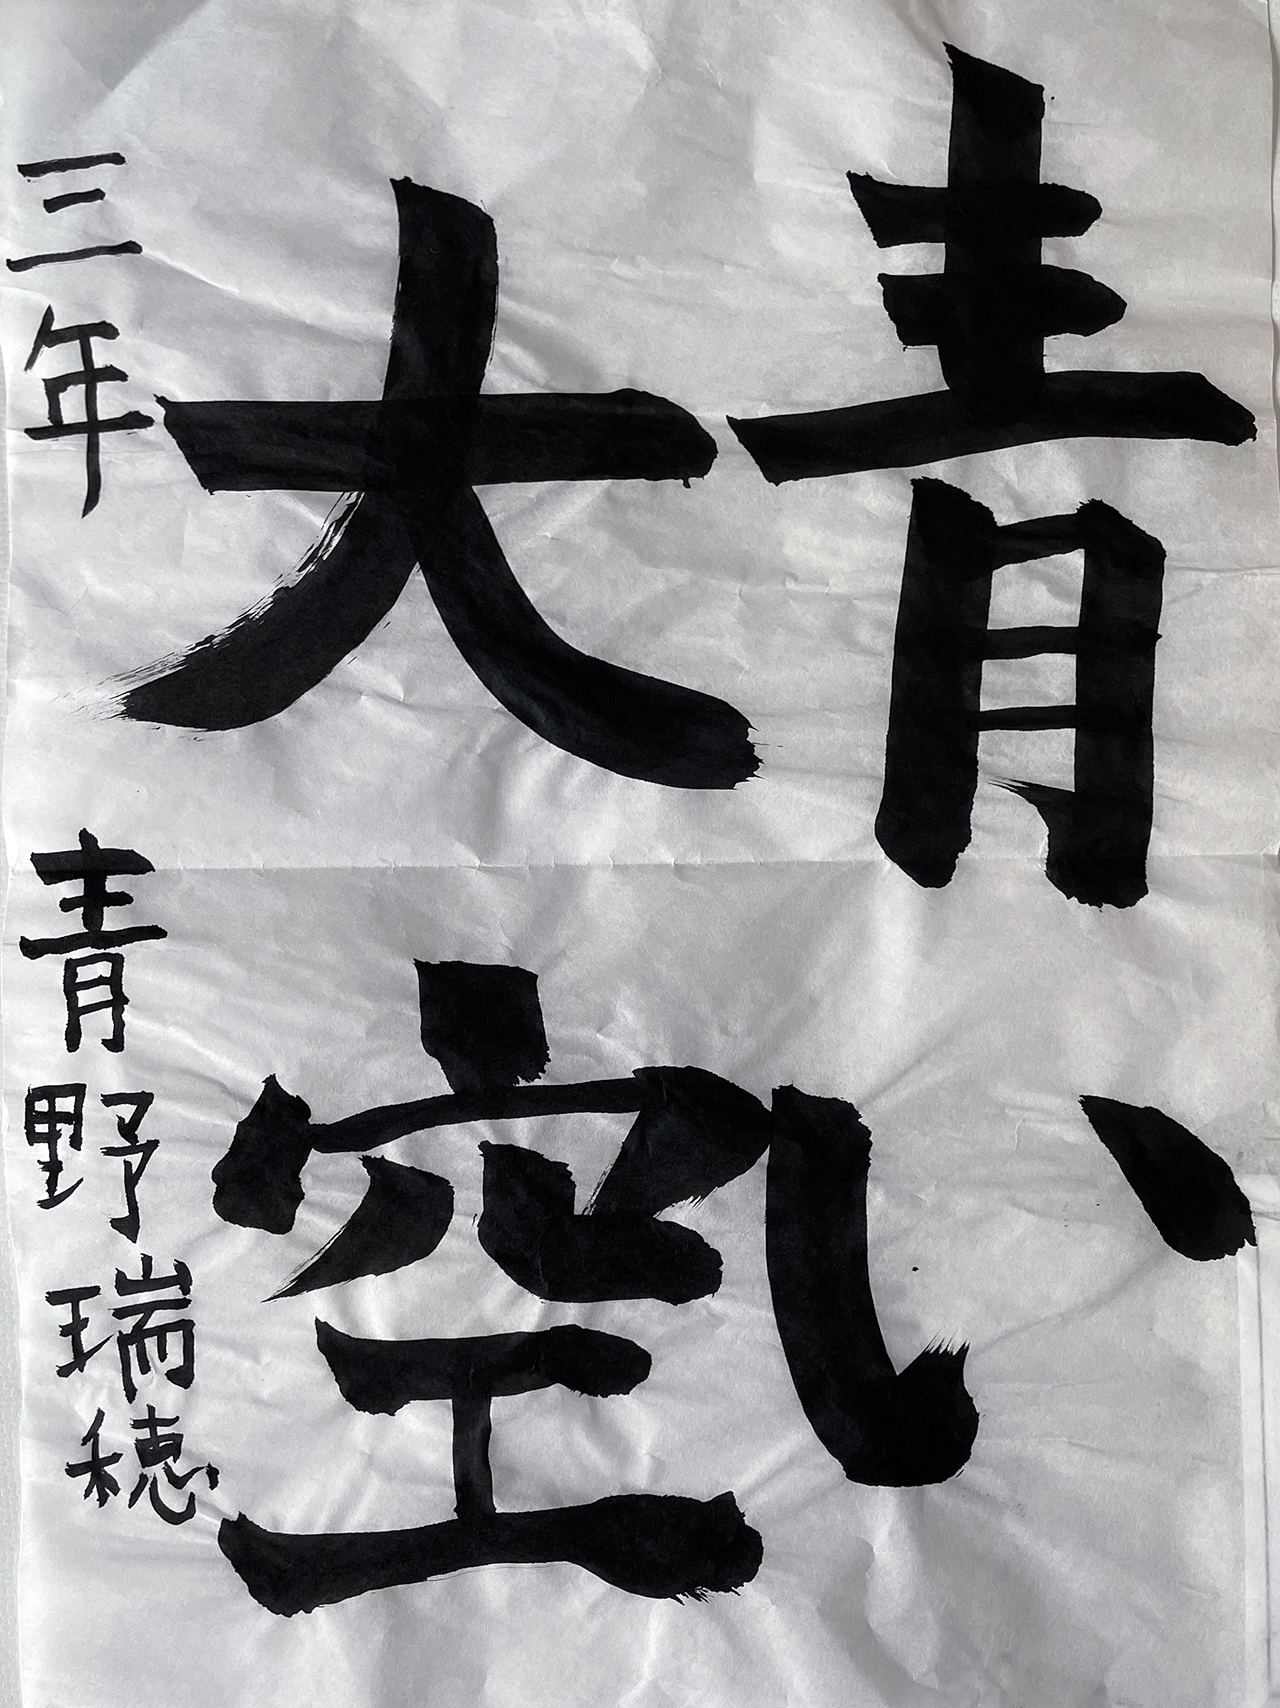 青い
大空
三年 青野瑞穂